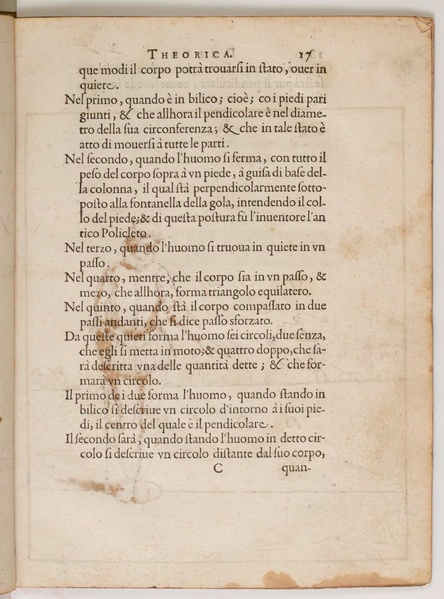 THEORICA. 17
que modi il corpo potrà trouarsi in stato, ouer in
quiete.
Nel primo, quando è in bilico; cioè; co i piedi pari
giunti, & che allhora il pendicolare è nel diame-
tro della sua circonferenza; & che in tale stato è
atto di mouersi à tutte le parti.
Nel secondo, quando l'huomo si ferma, con tutto il
peso del corpo sopra à vn piede, à guisa di base del-
la colonna, il qual stà perpendicolarmente sotto-
posto alla fontanella della gola, intendendo il col-
lo del piede; & di questa postura fu l'inuentore l'an
tico Policleto.
Nel terzo, quando l'huomo si truoua in quiete in vn
passo.
Nel quarto, mentre, che il corpo sia in vn passo, &
mezo, che allhora, forma triangolo equilatero.
Nel quinto, quando stà il corpo compassato in due
passi andanti, che si dice passo sforzato.
Da queste quieti forma l'huomo sei circoli; due senza,
che egli si metta in moto; & quattro doppo, che sa-
rà descritta vna delle quantità dette; & che for-
mara vn circolo.
Il primo de i due forma l'huomo, quando stando in
bilico si descriue vn circolo d'intorno à i suoi pie-
di, il centro del quale è il pendicolare.
Il secondo sarà, quando stando l'huomo in detto cir-
colo si descriue vn circolo distante dal suo corpo,
C quan-